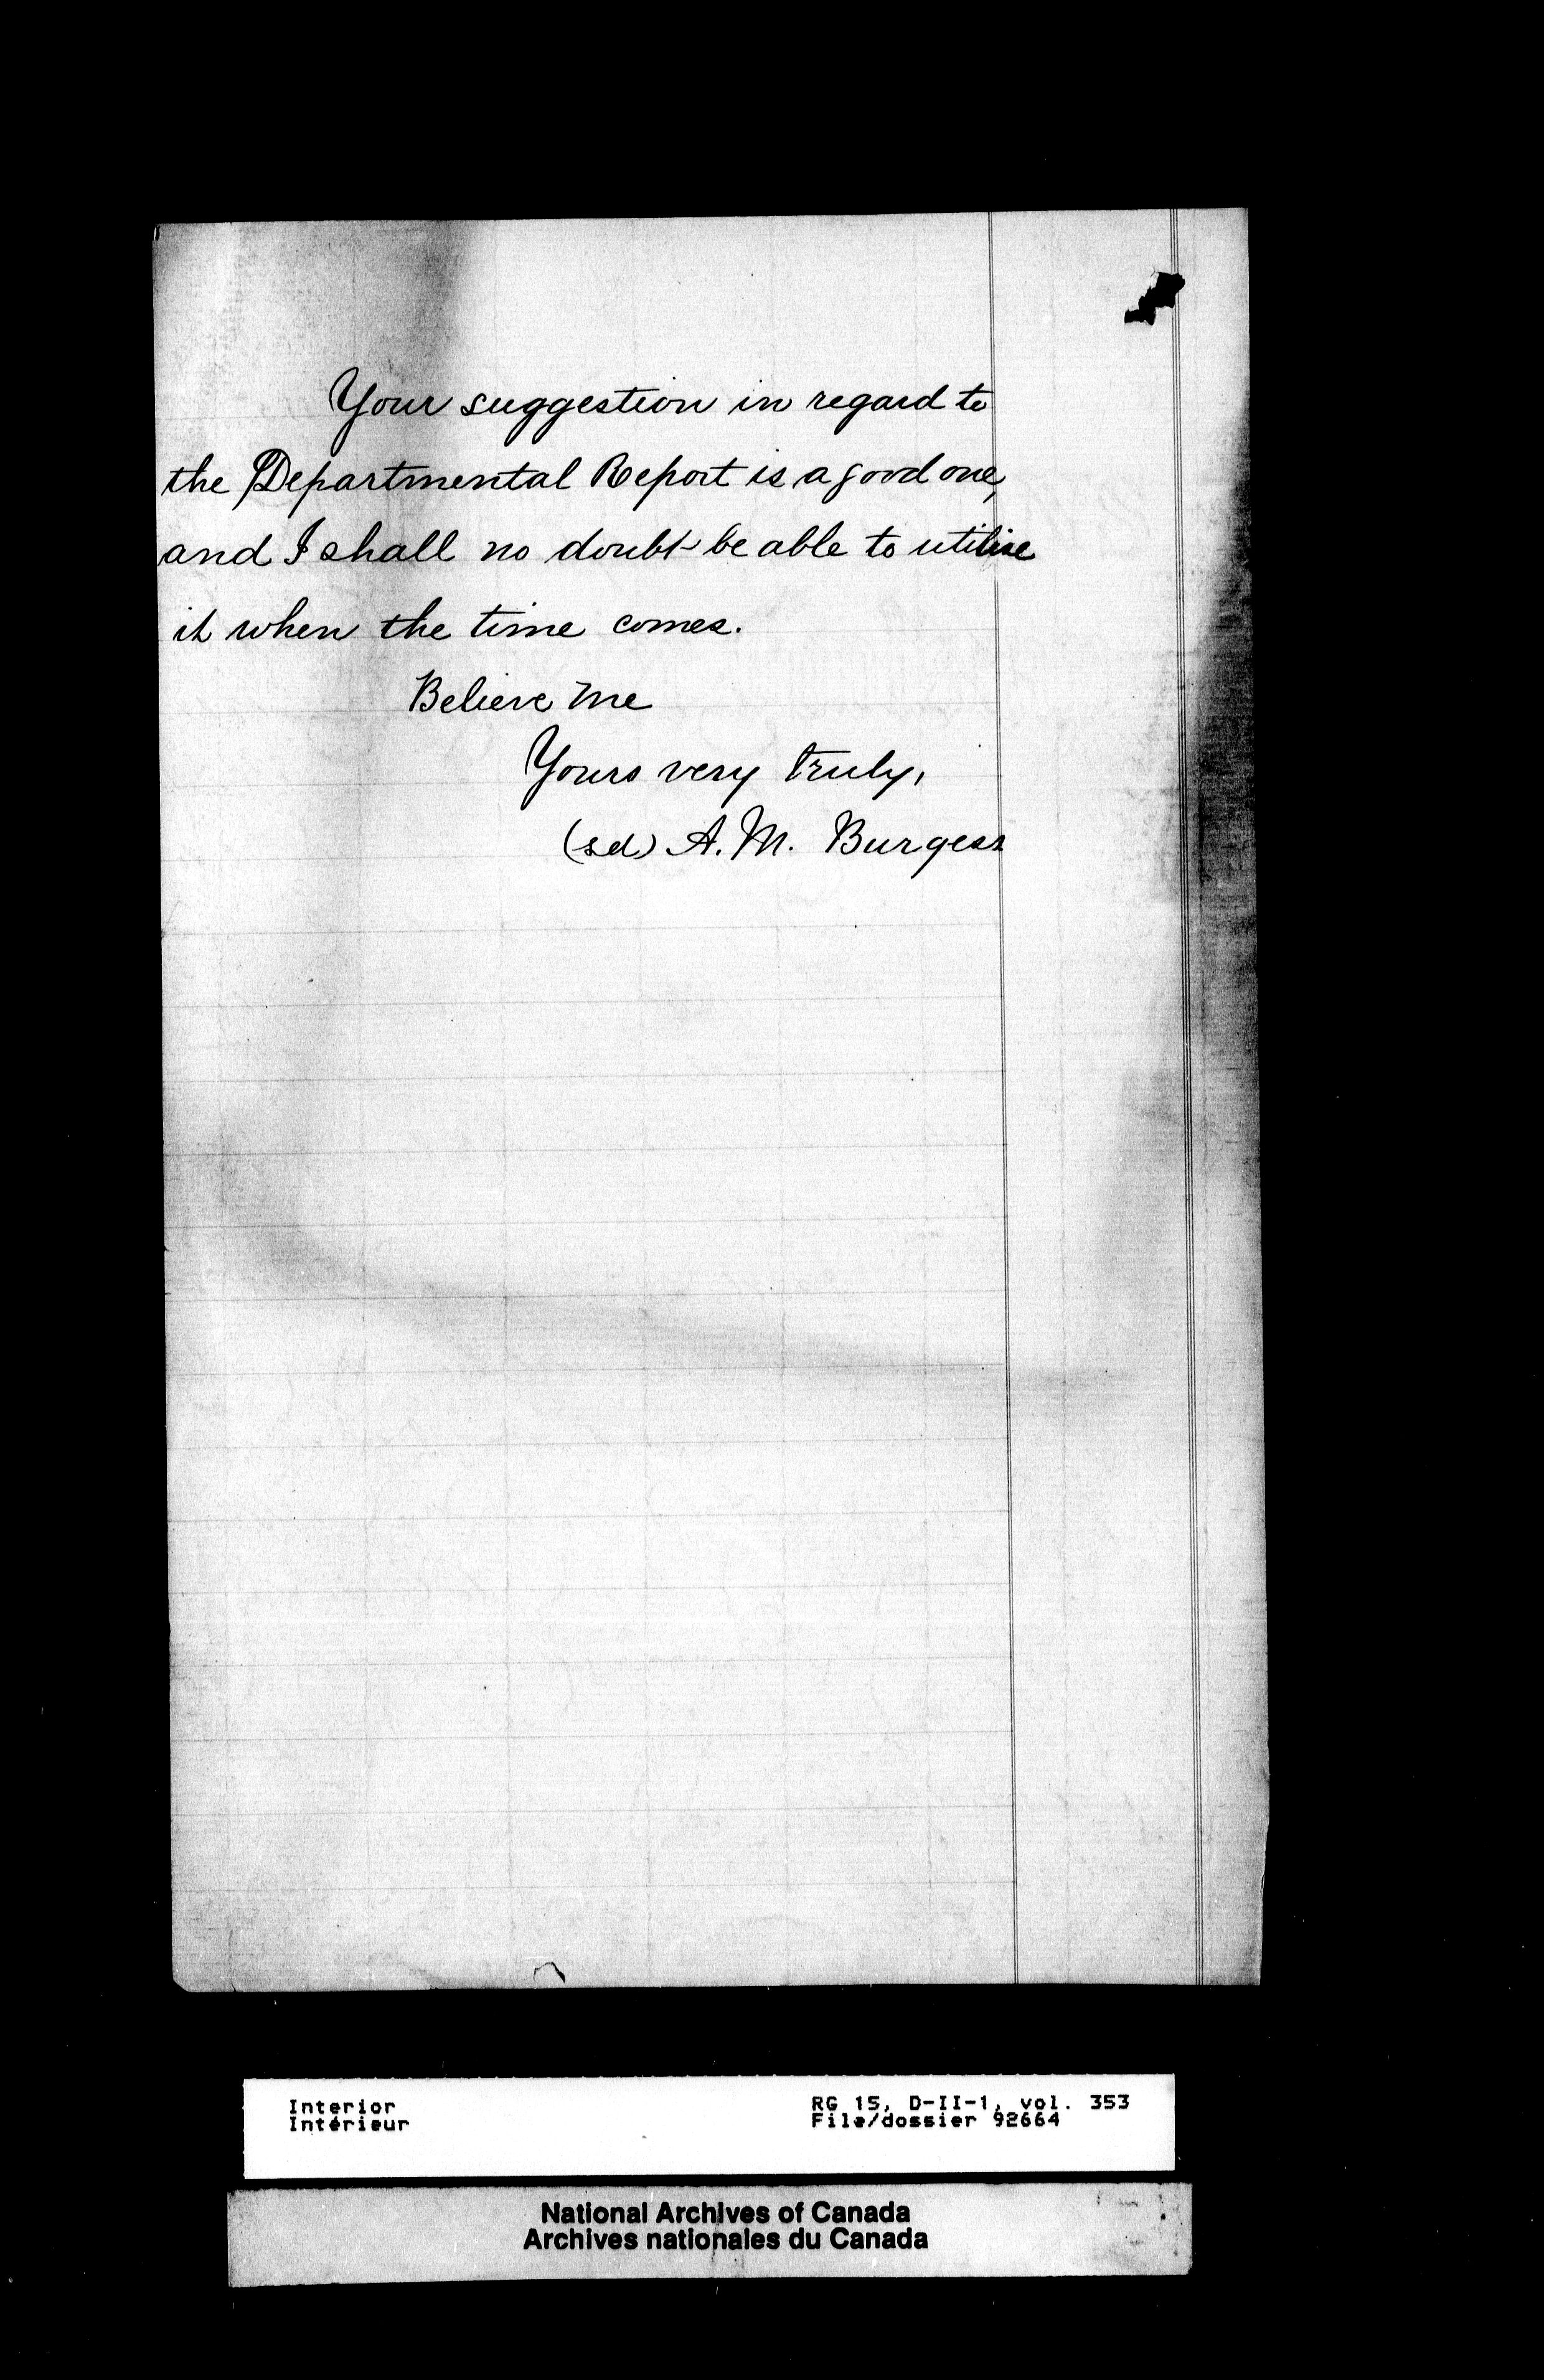 Your suggestion in regard to
the Departmental Report is a good one,
and I shall no doubt be able to utilise
it when the time comes.
Believe me
Yours very truly,
(sd) A. M. Burgess
Interior
Intérieur
RG 15, D-II-1, vol. 353
File/dossier 92664
National Archives of Canada
Archives nationales du Canada